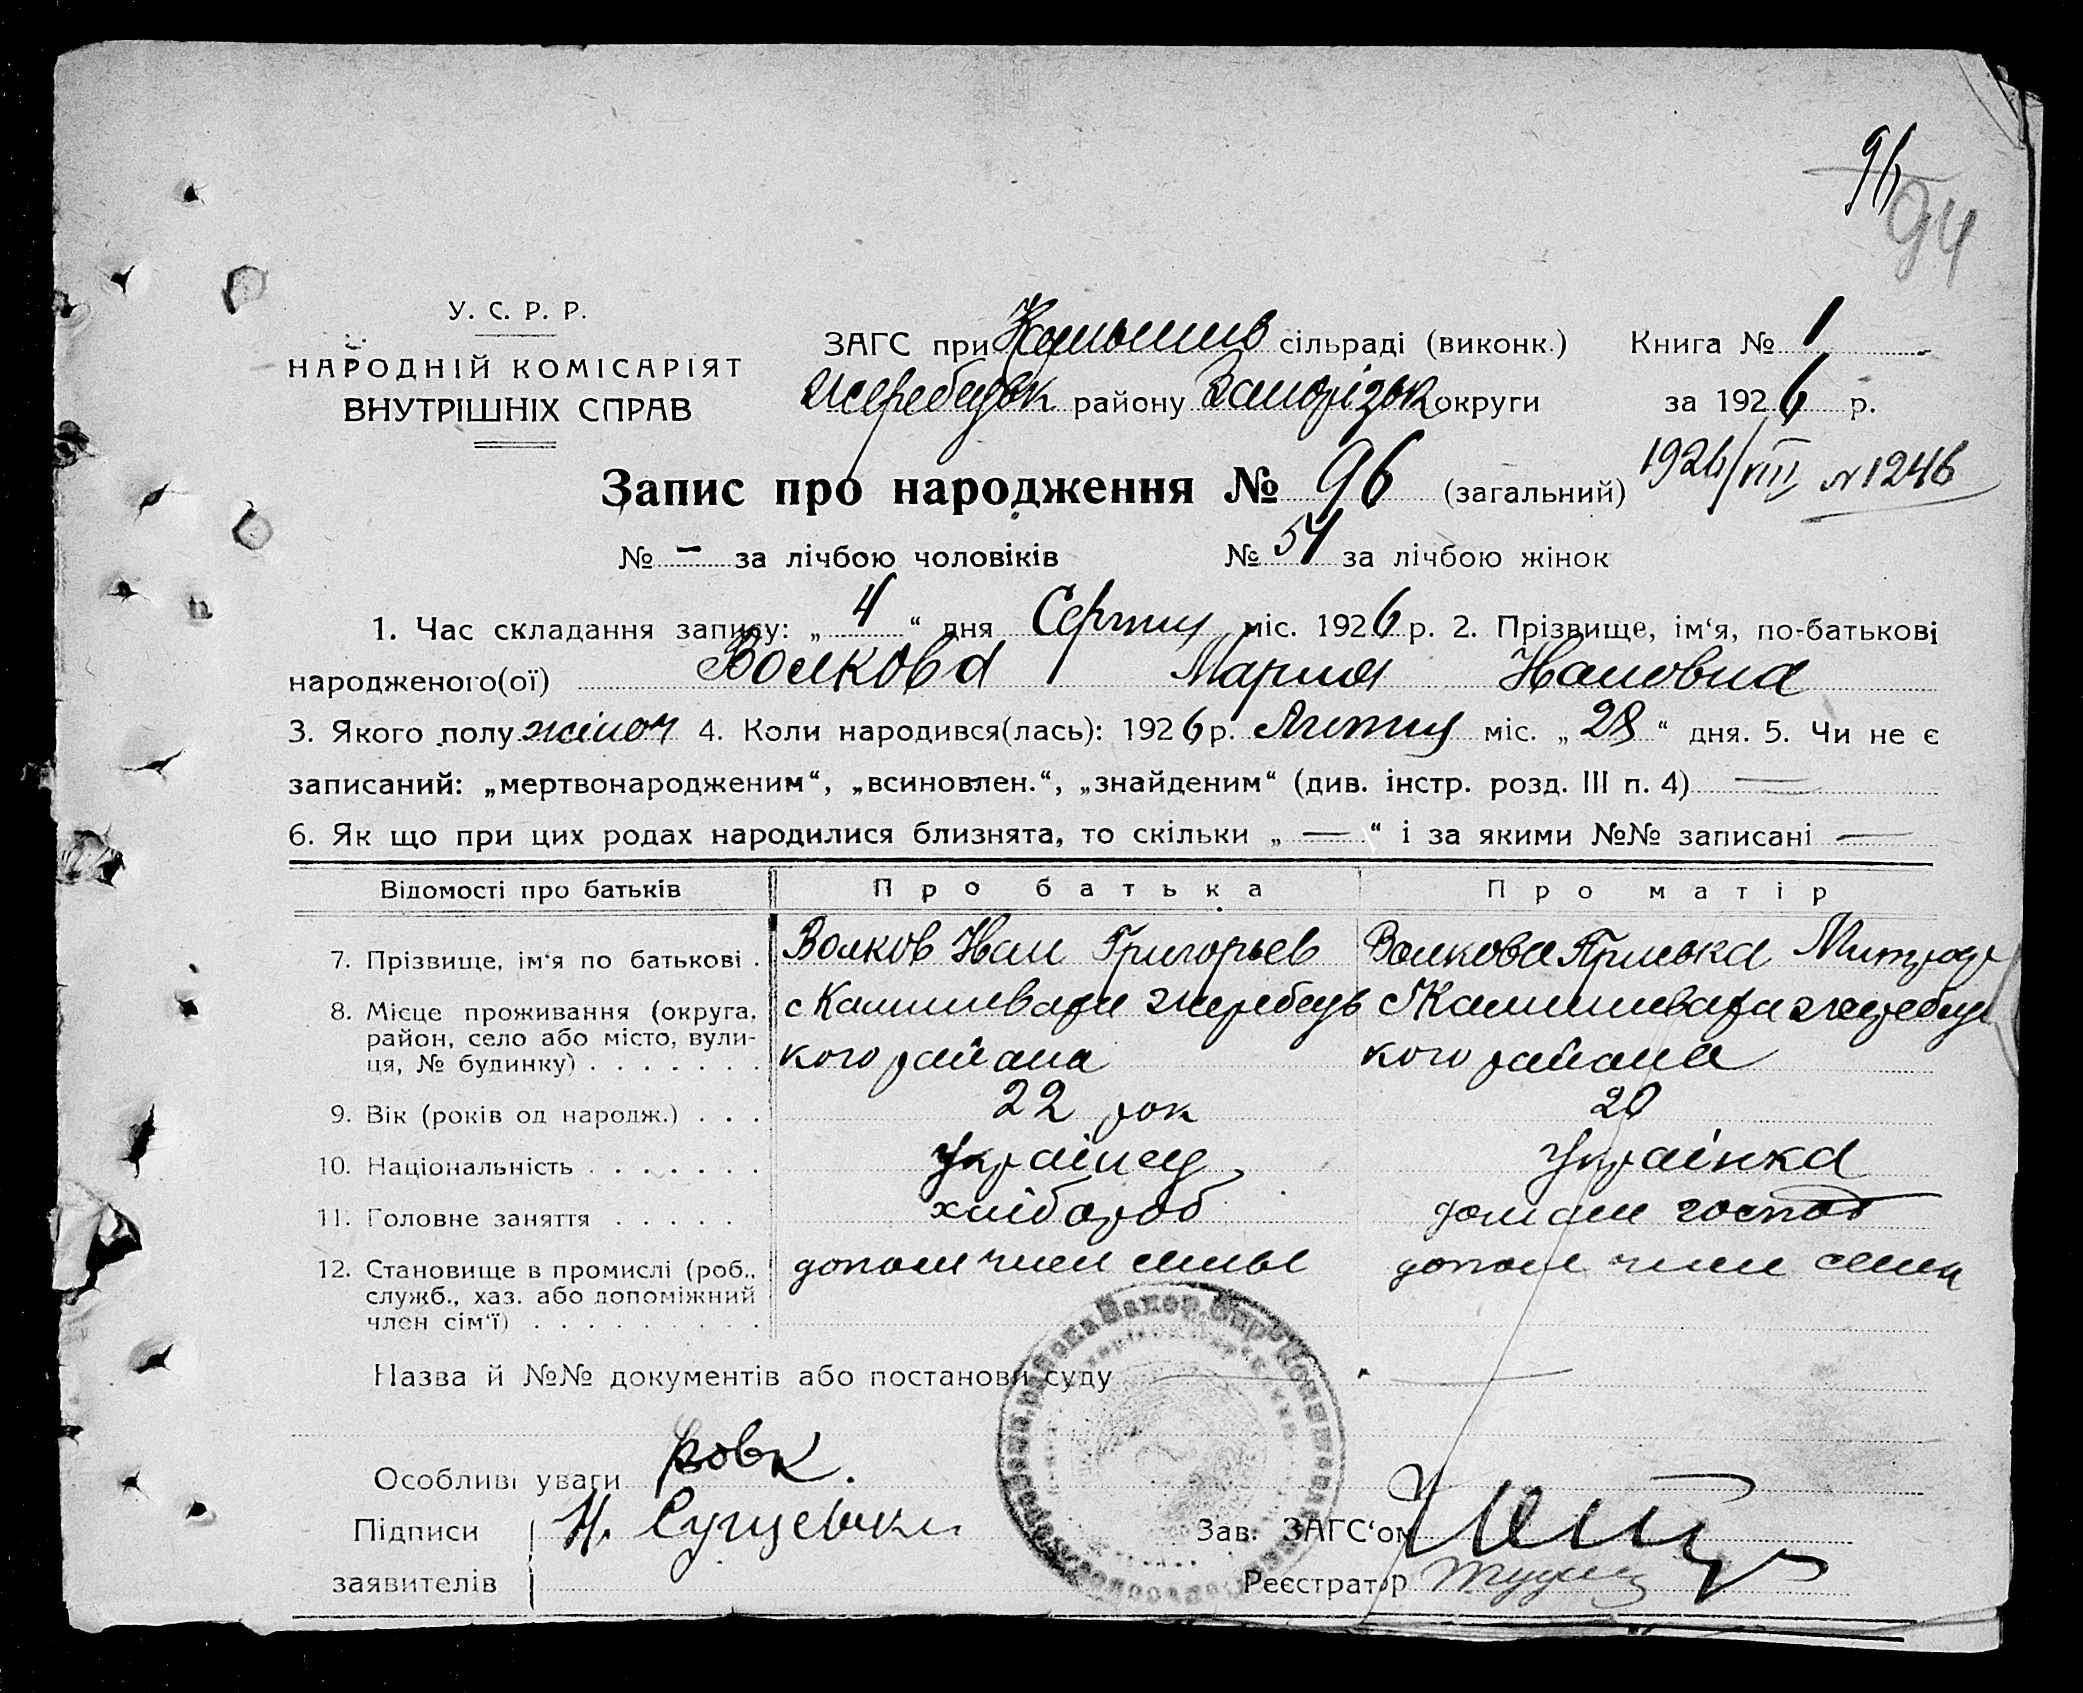 96
94
У. С. Р. Р.
НАРОДНІЙ КОМІСАРІЯТ
ВНУТРІШНІХ СПРАВ
ЗАГС при сільраді (виконк.) Книга № 1
Жеребецьк району Запорізьк округи за 1926 р.
Запис про народження № 96 (загальний) 1926/VIII N 1246
№ – за лічбою чоловіків № 54 за лічбою жінок
1. Час складання запису: „ 4 “ дня Серпня міс. 1926 р. 2. Прізвище, ім‘я, по-батькові
народженого(ої) Волкова Мария Ивановна
3. Якого полу жіноч 4. Коли народився(лась): 1926 р. міс. „ 28 “ дня. 5. Чи не є
записаний: „мертвонародженим“, „всиновлен.“, „знайденим“ (див. інстр. розд. III п. 4) —
6. Як що при цих родах народилися близнята, то скільки „ — “ і за якими №№ записані —
Відомості про батьків Про батька Про матір
7. Прізвище, ім‘я по батькові . Волков Иван Григорьев Волкова
8. Місце проживання (округа, район, село або місто, вулиця, № будинку) . . . . . . .
с Камишеваха жеребець
кого района
с Камишеваха жеребець
кого района
9. Вік (років од народж.) . . . 22 рок 20
10. Національність . . . . . . . українец українка
11. Головне заняття . . . . . хлібороб домаш господ
12. Становище в промислі (роб., служб., хаз. або допоміжний член сім‘ї) . . . . . . . . . .
допом член семьи допом член семьи
Назва й №№ документів або постанови суду —
Особливі уваги
Підписи Зав. ЗАГС‘ом
заявителів Реєстратор